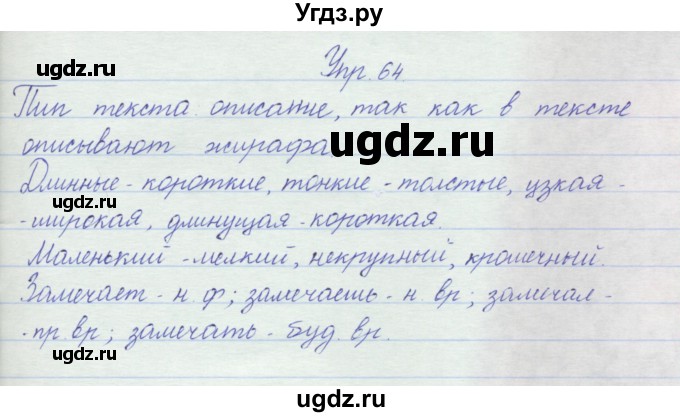 Угдз.ру
ugdz.ru ugdz.ru ugdz.ru
Упр. 64.
Тип текста описание, так как в тексте
описывают жирафа
ugdz.ru
ugdz.ru
Длинные - короткие, тонкие - толстые, узкая -
- широкая, длинущая - короткая.
ugdz.ru
Маленький - мелкий, некрупный, крошечный.
ugdz.ru
Замечает - н. ф; замечаешь - н вр; замечал -
- пр. вр; замечать - буд. вр.
ugdz.ru
ugdz.ru
ugdz.ru